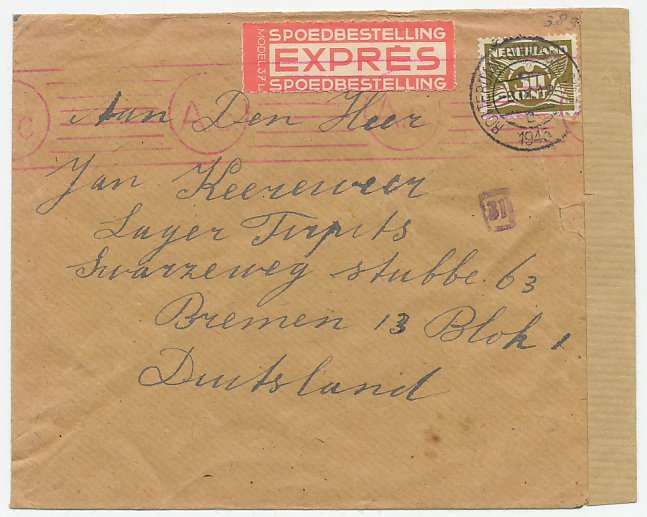 384
SPOEDBESTELLING
MODEL 37
EXPRÈS
SPOEDBESTELLING
NEDERLAND
CENT
1943
C
A
A
Aan Den Heer
Jan Keereweer
31
Lager Tirpits
Swarzeweg stubbe 63
Bremen 13 Blok 1
Duitsland